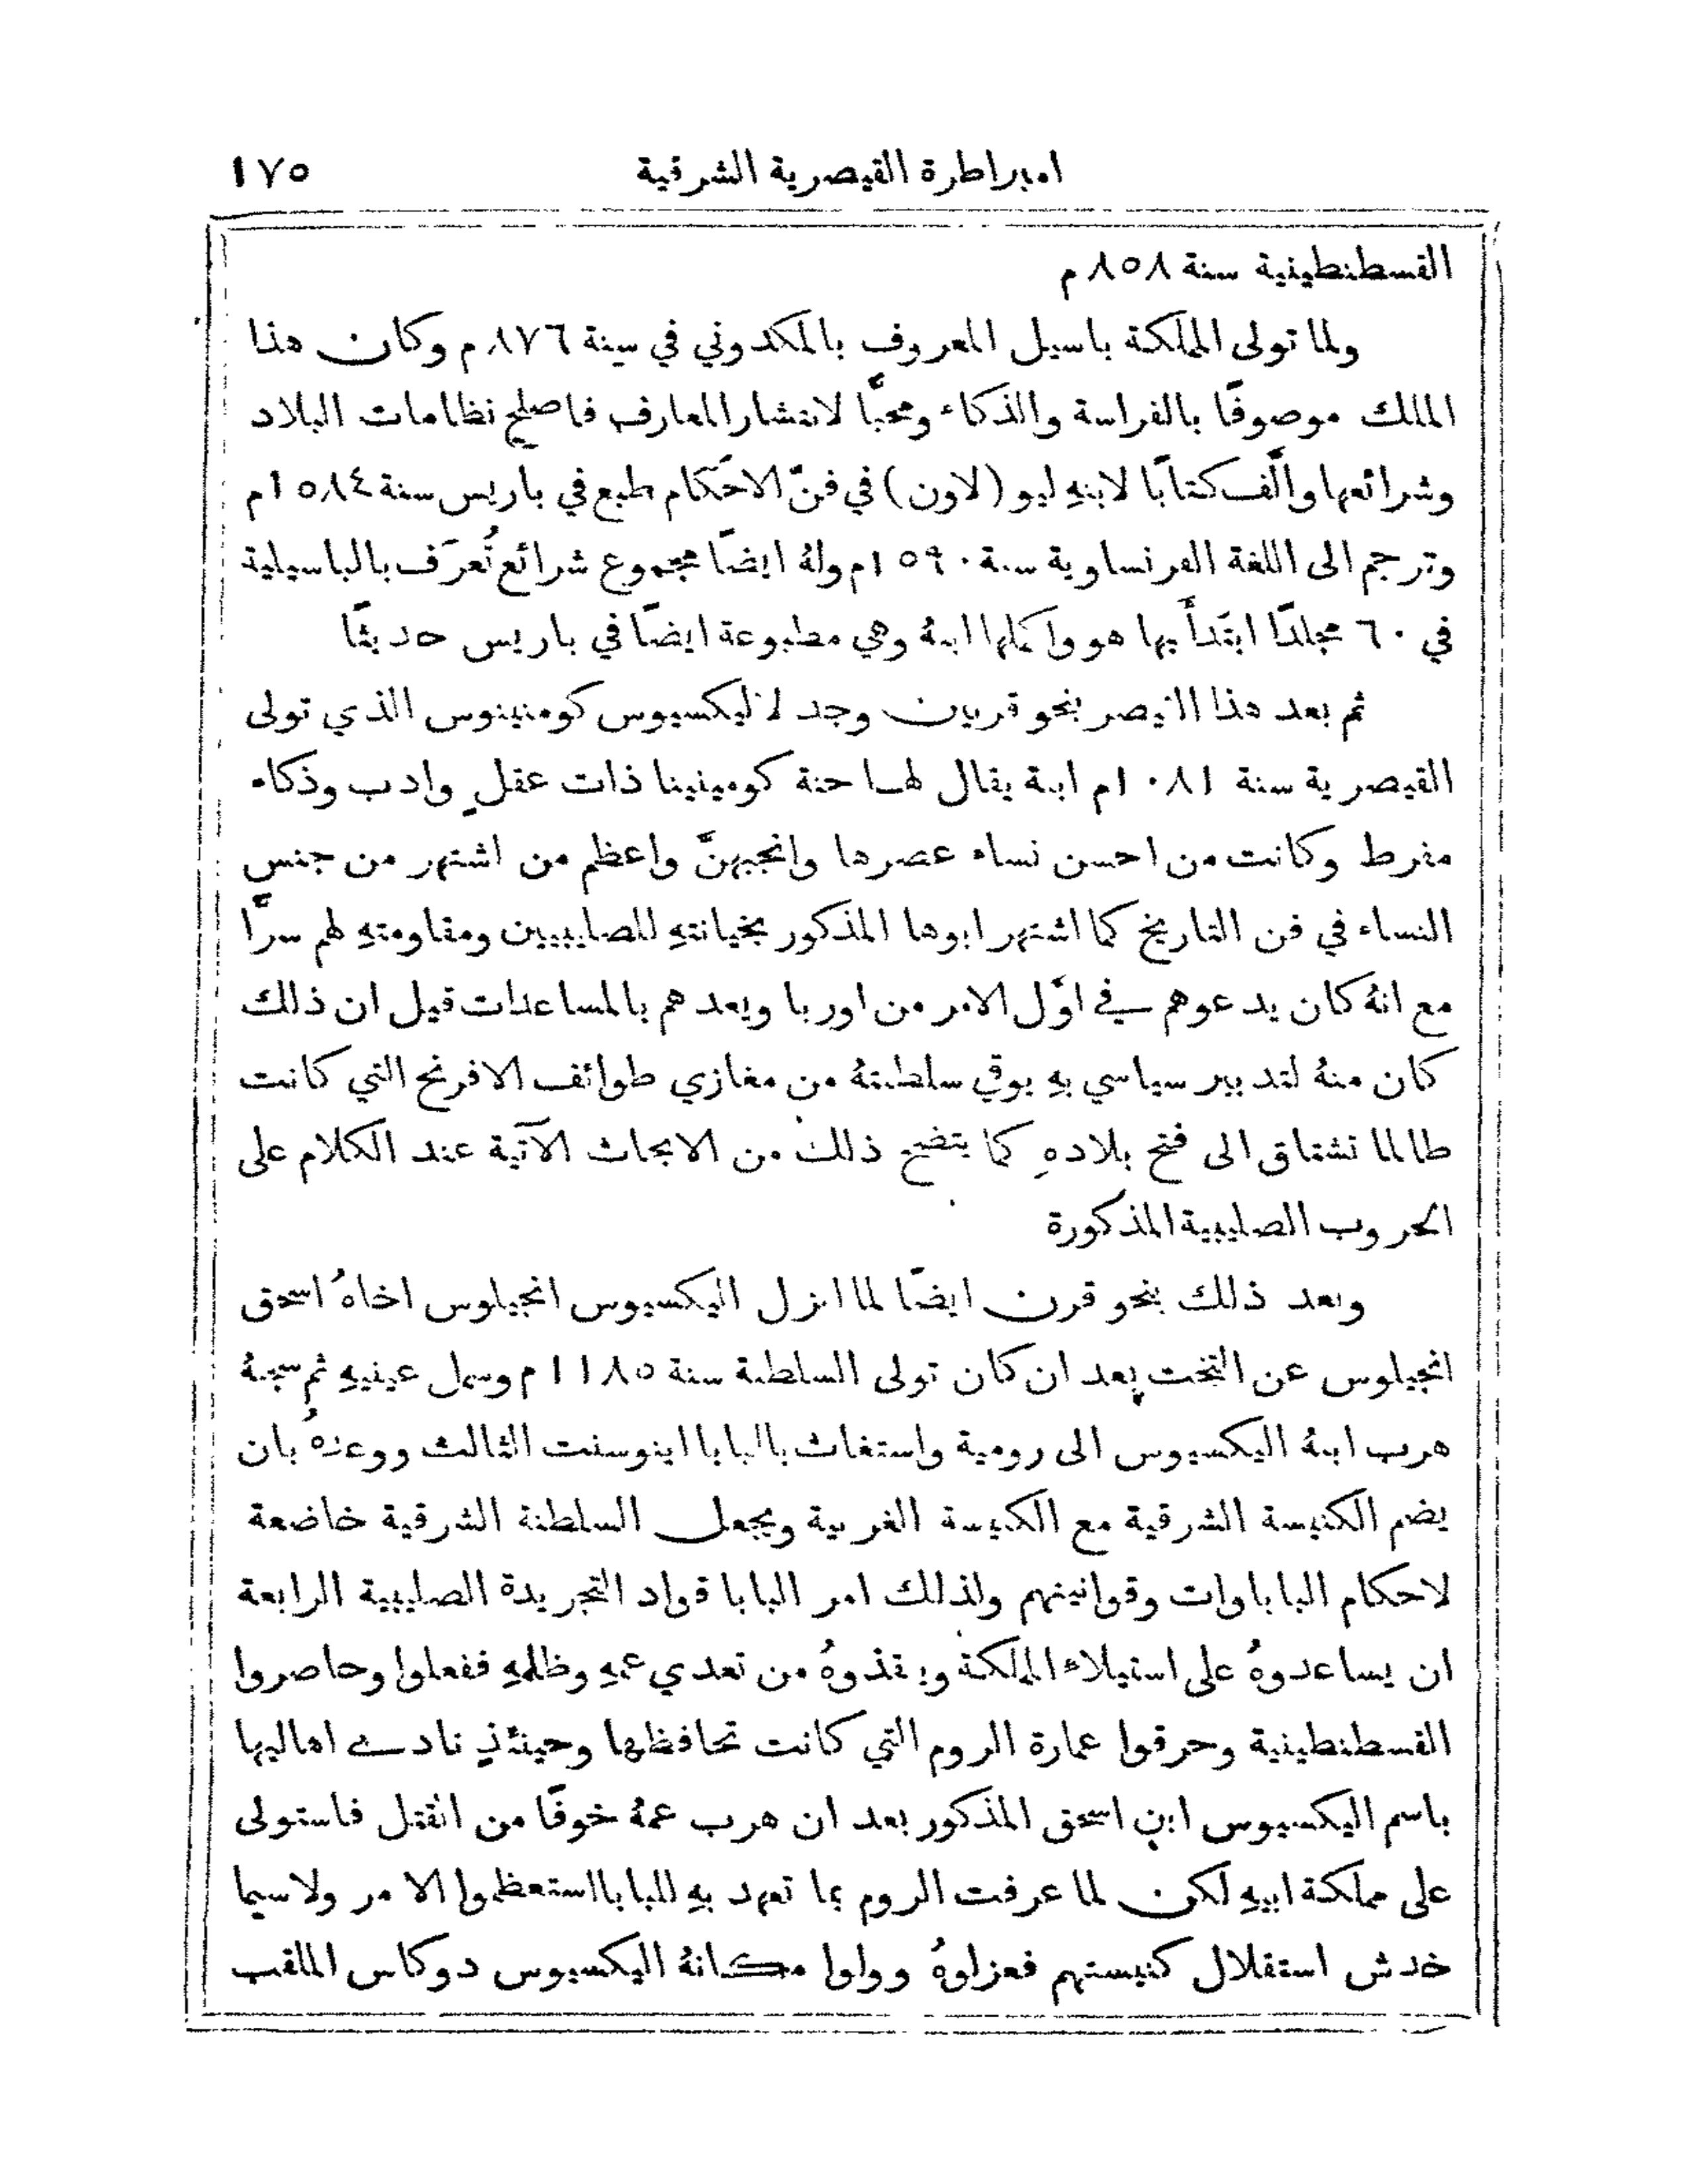 امبراطرة القيصرية الشرقية ١٧٥
القسطنطينية سنة ٨٥٨ م
ولما تولى المملكة باسيل المعروف بالمكدوني في سنة ٨٧٦ م وكان هذا
الملك موصوفًا بالفراسة والذكاء ومحبًّا لانتشار المعارف فاصلح نظامات البلاد
وشرائعها والَّف كتابًا لابنهِ ليو (لاون) في فنّ الاحكام طبع في باريس سنة ١٥٨٤م
وترجم الى اللغة الفرنساوية سنة ١٥٩٠م ولهُ ايضًا مجموع شرائع تُعرَف بالباسيلية
في ٦٠ مجلدًا ابتدأَ بها هو واكملها ابنهُ وهي مطبوعة ايضًا في باريس حديثًا
ثم بعد هذا القيصر بنحو قرنين وجد لاليكسيوس كومنينوس الذي تولى
القيصرية سنة ١٠٨١م ابنة يقال لها حنة كومينينا ذات عقلٍ وادب وذكاء
مفرط وكانت من احسن نساء عصرها وانجبهنَّ واعظم من اشتهر من جنس
النساء في فن التاريخ كما اشتهر ابوها المذكور بخيانتهِ للصليبيين ومقاومتهِ لهم سرًّا
مع انهُ كان يدعوهم في اوَّل الامر من اوربا ويعدهم بالمساعدات قيل ان ذلك
كان منهُ لتدبير سياسي بهِ يوقي سلطنتهُ من مغازي طوائف الافرنج التي كانت
طالما تشتاق الى فتح بلادهِ كما يتضح ذلك من الابحاث الآتية عند الكلام على
الحروب الصليبية المذكورة
وبعد ذلك بنحو قرن ايضًا لما انزل اليكسيوس انجيلوس اخاهُ اسحق
انجيلوس عن التخت بعد ان كان تولى السلطنة سنة ١١٨٥ م وسمل عينيهِ ثم سجنهُ
هرب ابنهُ اليكسيوس الى رومية واستغاث بالبابا اينوسنت الثالث ووعدهُ بان
يضم الكنيسة الشرقية مع الكنيسة الغربية ويجعل السلطنة الشرقية خاضعة
لاحكام الباباوات وقوانينهم ولذلك امر البابا قواد التجريدة الصليبية الرابعة
ان يساعدوهُ على استيلاء المملكة وينقذوهُ من تعدي عمهِ وظلمهِ ففعلوا وحاصروا
القسطنطينية وحرقوا عمارة الروم التي كانت تحافظها وحينئذٍ نادى اهاليها
باسم اليكسيوس ابن اسحق المذكور بعد ان هرب عمهُ خوفًا من القتل فاستولى
على مملكة ابيهِ لكن لما عرفت الروم بما تعهد بهِ للبابا استعظموا الامر ولاسيما
خدش استقلال كنيستهم فعزلوهُ وولوا مكانهُ اليكسيوس دوكاس الملقب